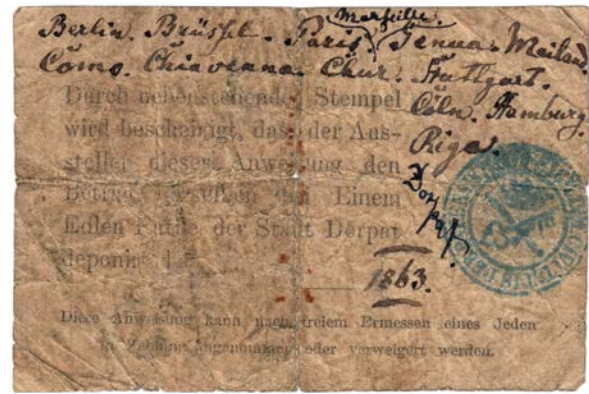 Marseille.
Berlin. Brüssel. Paris. Genua. Mailand.
Como. Chiavenna. Chur. Stuttgart.
Cöln. Hamburg.
Riga.
Dorpat.
1863.
Durch nebenstehenden Stempel
wird bescheinigt, dass der Aus-
steller dieser Anweisung den
Betrag derselben bei Einem
Edlen Rathe der Stadt Dorpat
deponirt
Diese Anweisung kann nach freiem Ermessen eines Jeden
in Zahlung angenommen oder verweigert werden.